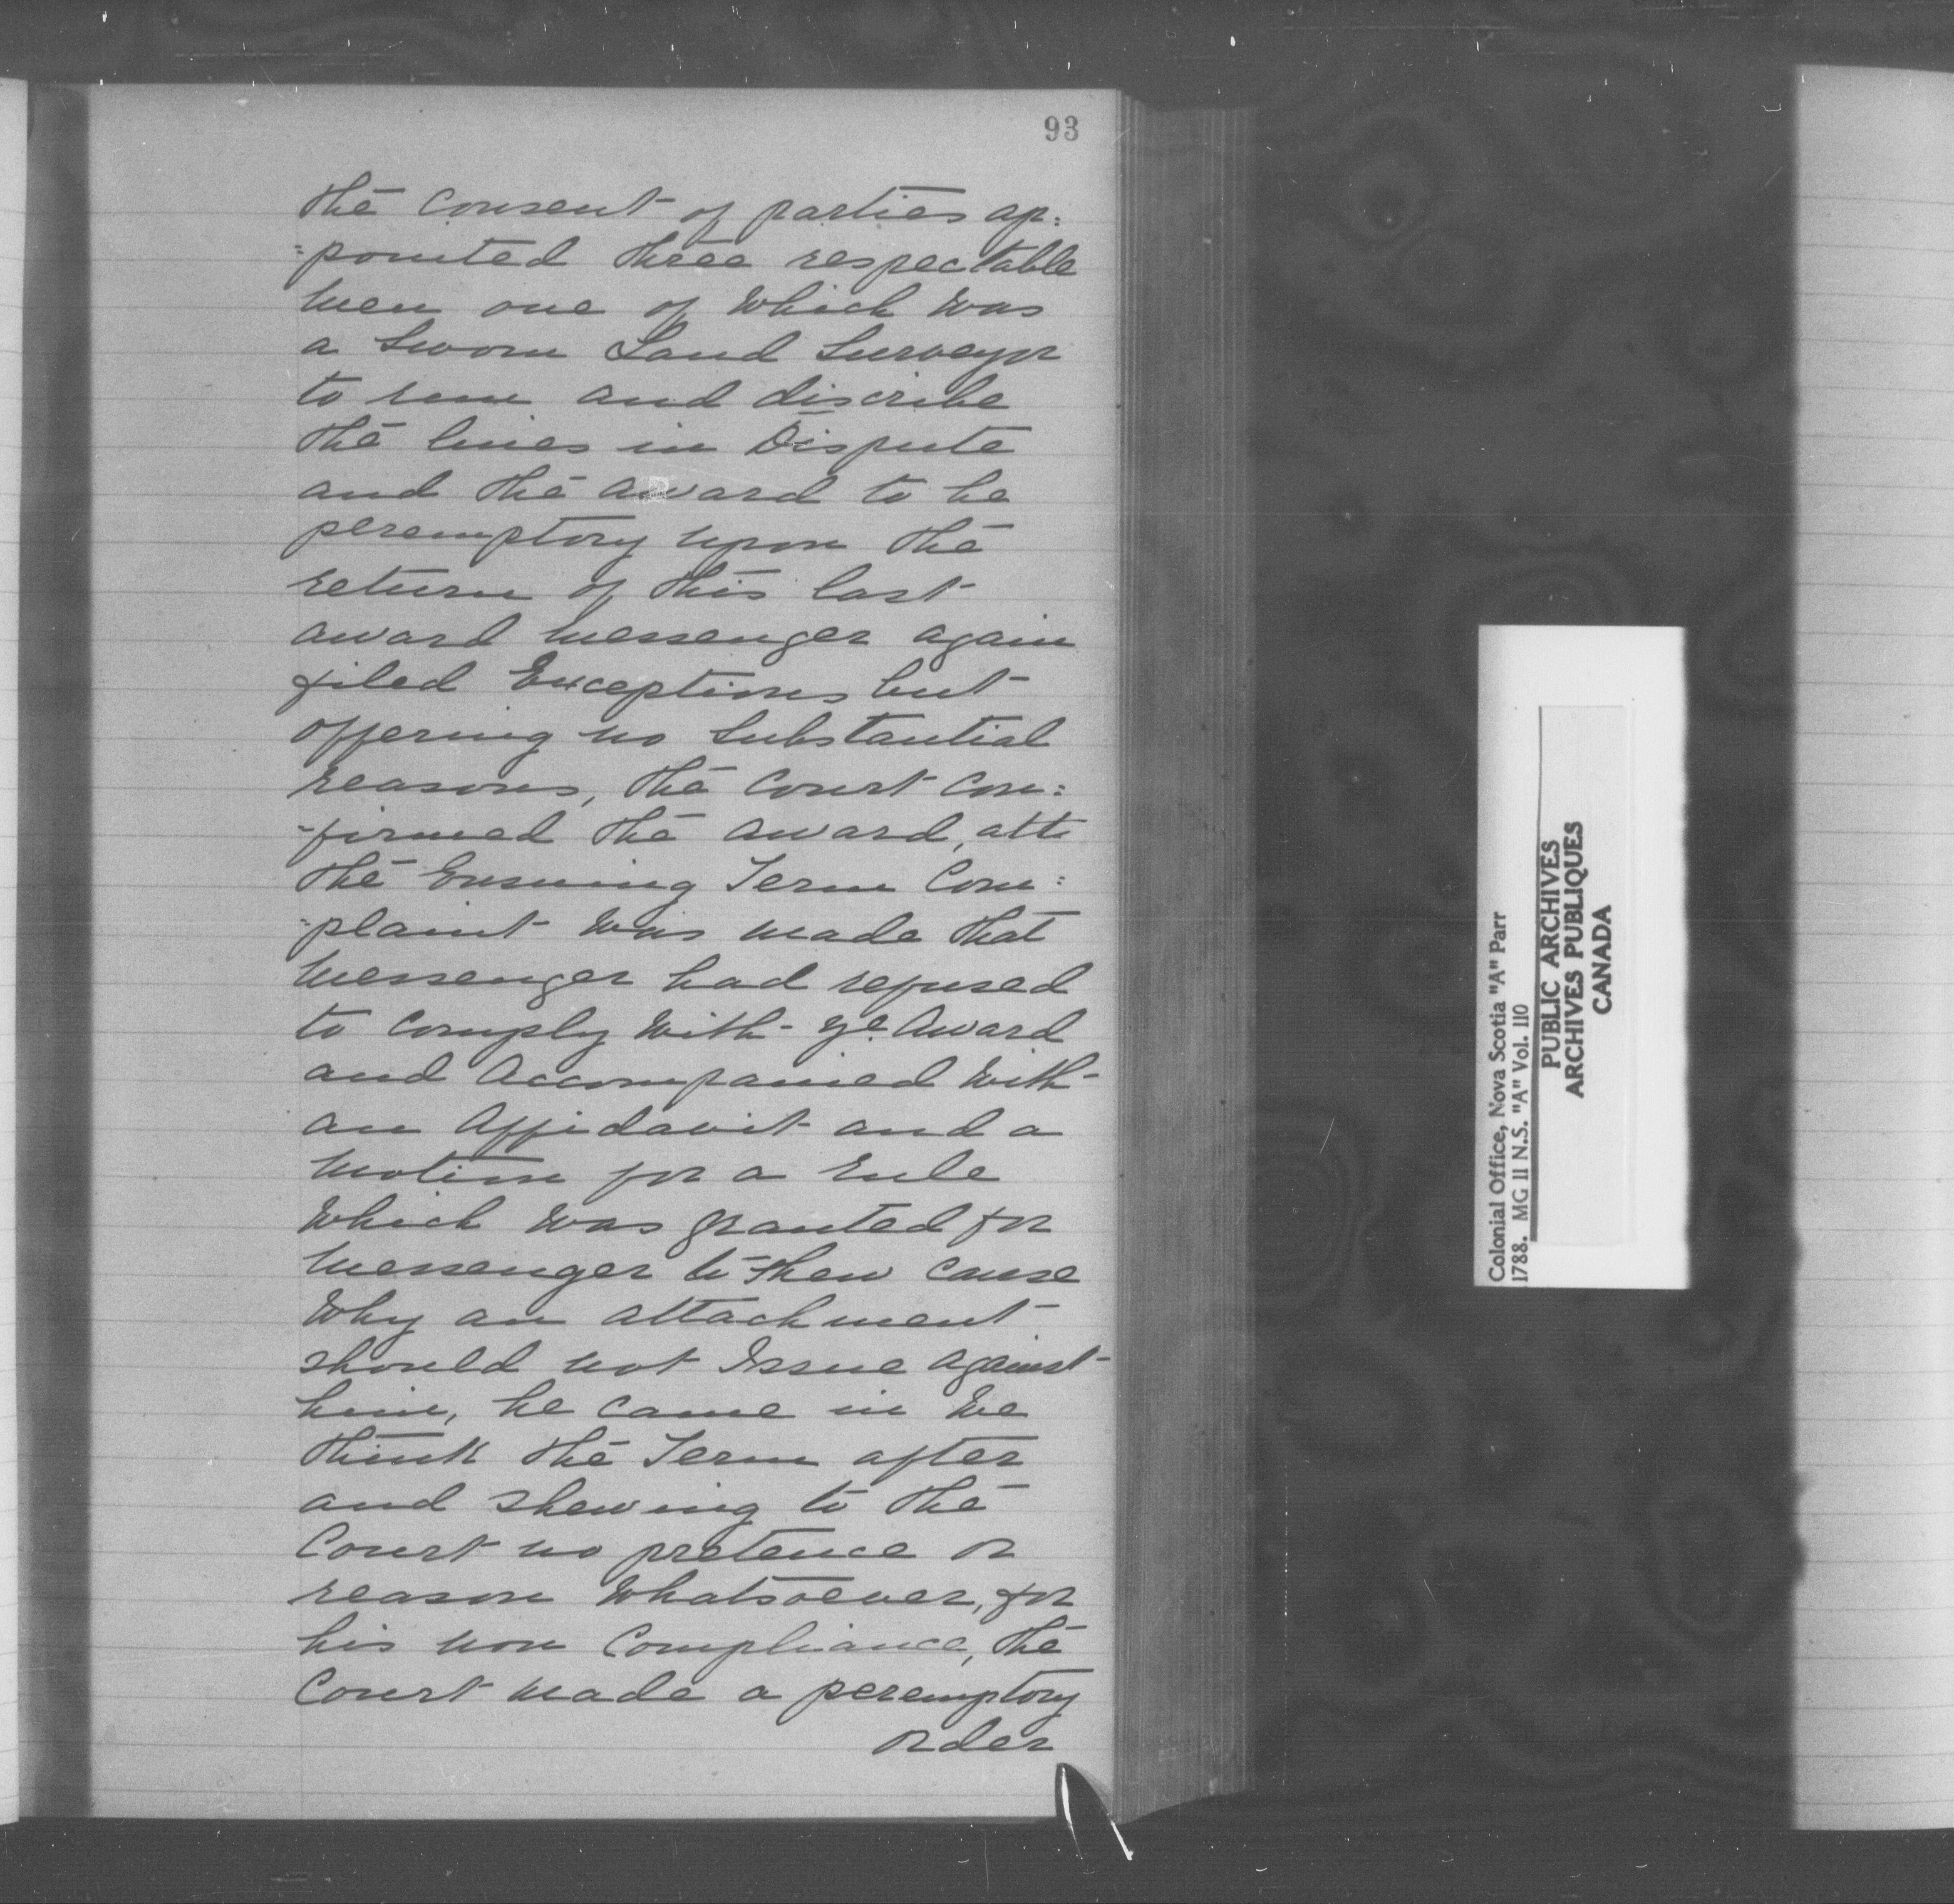 93
the Consent of parties ap:
=pointed three respectable
men one of Which Was
a Sworn Land Surveyor
to run and discribe
the lines in Dispute
and the award to be
peremptory upon the
return of this last
award Messenger again
filed Exceptions but
offering no Substantial
reasons, the Court Con:
=firmed the award, att
the Ensuing Term Com:
=plaint Was made that
Messenger had refused
to Comply With ye. Award
and Accompanied With
an Affidavit and a
Motion for a Rule
Which Was granted for
Messenger to Shew Cause
Why an attachment
should not Issue against
him, he Came in We
think the Term after
and Shewing to the
Court no pretence or
reason Whatsoever, for
his non Compliance, the
Court made a peremptory
order
Colonial Office, Nova Scotia "A" Parr
1788. MG 11 N.S. "A" Vol. 110
PUBLIC ARCHIVES
ARCHIVES PUBLIQUES
CANADA